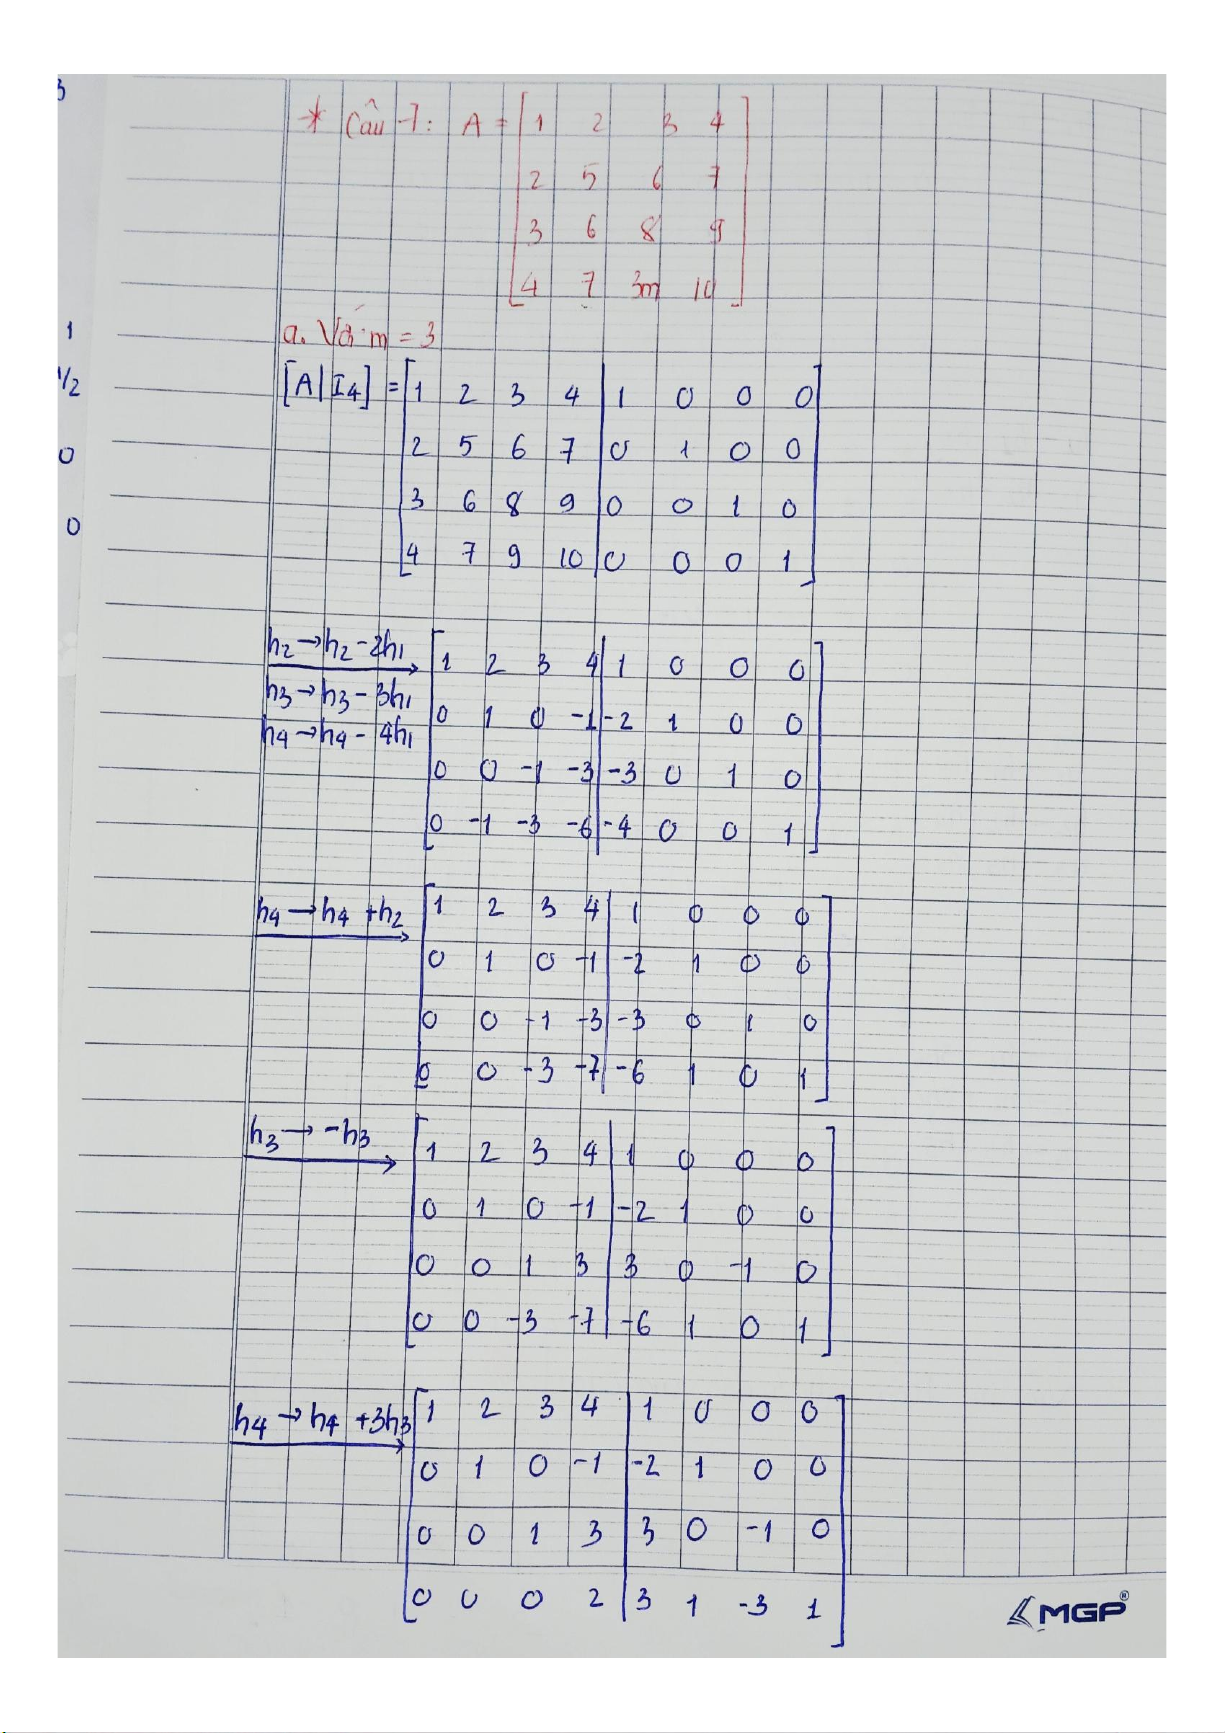 3
* Câu 7: A = [ 1 2 3 4 ]
2 5 6 7
3 6 8 9
4 7 3m 10
a. Với m = 3
1
[A | I4] = [ 1 2 3 4 | 1 0 0 0 ]
1/2
2 5 6 7 | 0 1 0 0
0
3 6 8 9 | 0 0 1 0
0
4 7 9 10 | 0 0 0 1
h2 → h2 - 2h1 [ 1 2 3 4 | 1 0 0 0 ]
h3 → h3 - 3h1
0 1 0 -1 | -2 1 0 0
h4 → h4 - 4h1
0 0 -1 -3 | -3 0 1 0
0 -1 -3 -6 | -4 0 0 1
h4 → h4 + h2 [ 1 2 3 4 | 1 0 0 0 ]
0 1 0 -1 | -2 1 0 0
0 0 -1 -3 | -3 0 1 0
0 0 -3 -7 | -6 1 0 1
h3 → -h3 [ 1 2 3 4 | 1 0 0 0 ]
0 1 0 -1 | -2 1 0 0
0 0 1 3 | 3 0 -1 0
0 0 -3 -7 | -6 1 0 1
h4 → h4 + 3h3 [ 1 2 3 4 | 1 0 0 0 ]
0 1 0 -1 | -2 1 0 0
0 0 1 3 | 3 0 -1 0
0 0 0 2 | 3 1 -3 1
MGP®